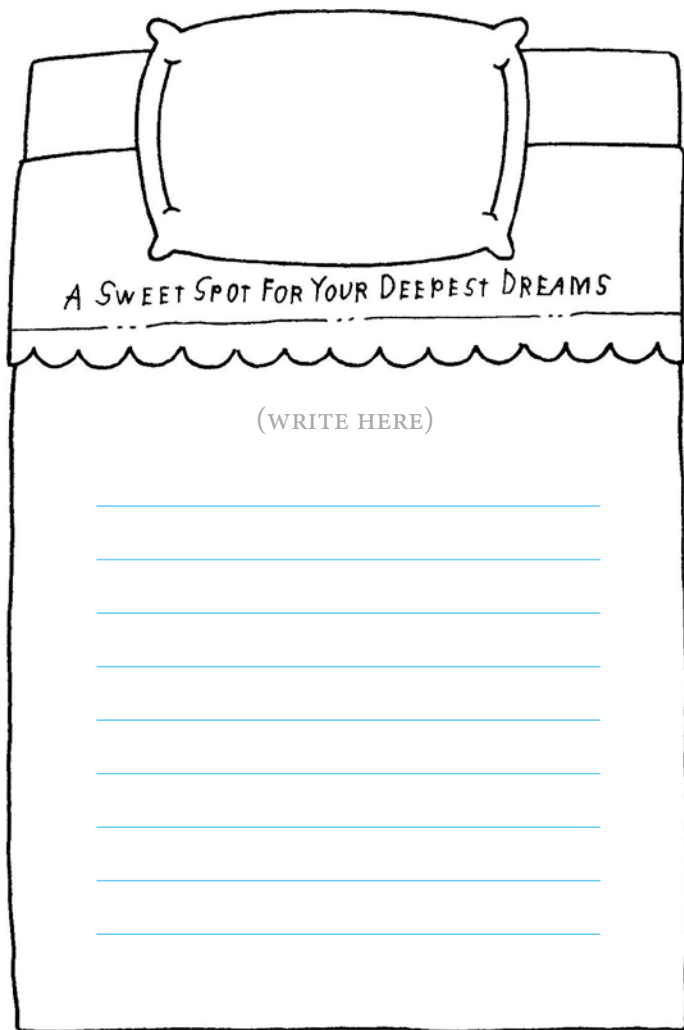 A SWEET SPOT FOR YOUR DEEPEST DREAMS
(WRITE HERE)